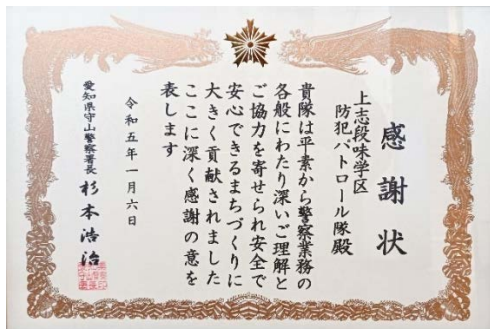 感謝状
上志段味学区
防犯パトロール隊殿
貴隊は平素から警察業務の
各般にわたり深いご理解と
ご協力を寄せられ安全で
安心できるまちづくりに
大きく貢献されました
ここに深く感謝の意を
表します
令和五年一月六日
愛知県守山警察署長 杉本浩治